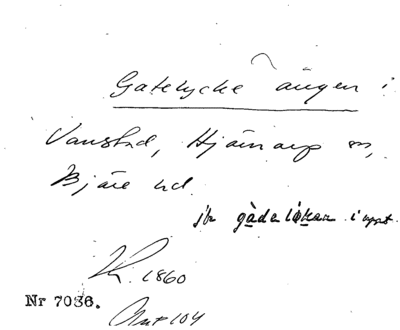 Gatelycke ängen i
Vanstad, Hjärnarp sn,
Bjäre hd.
jfr gådelökan i uppt.
1860
Nr 7036.
104